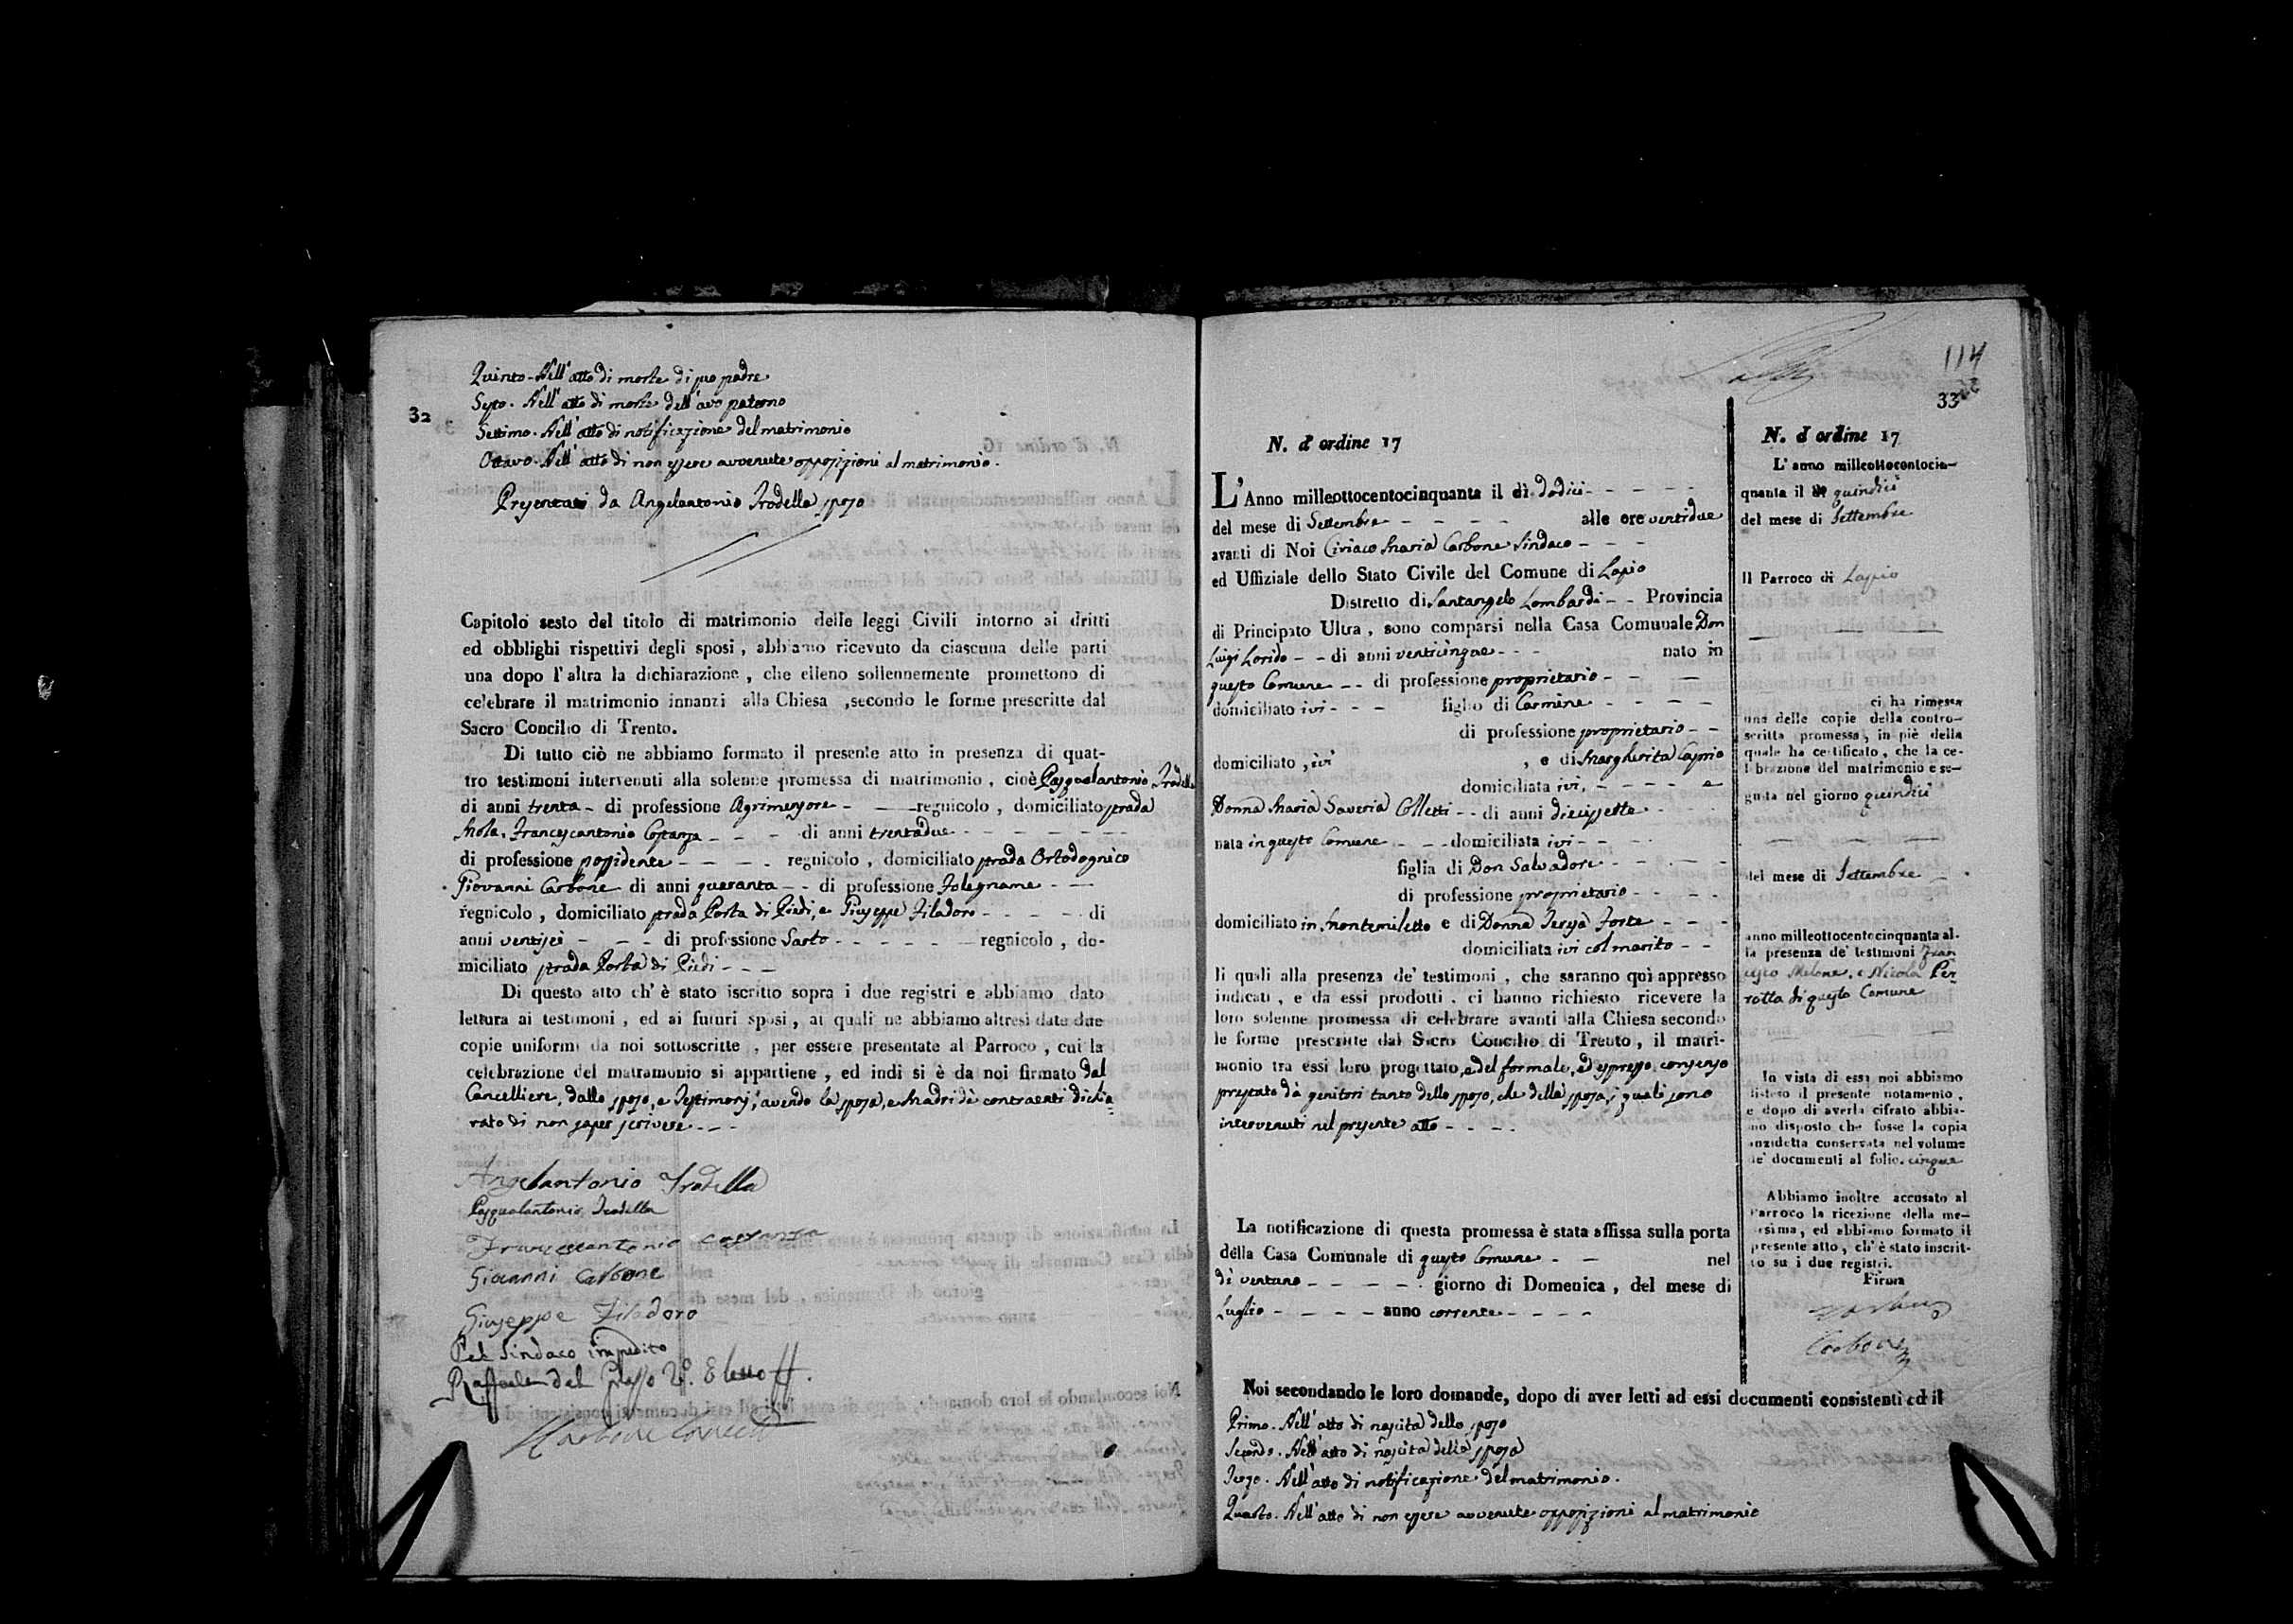 32
Quinto. Nell'atto di morte di suo padre
Sesto. Nell'atto di morte dell'avo paterno
Settimo. Nell'atto di notificazione del matrimonio
Ottavo. Nell'atto di non essere avvenute opposizioni al matrimonio.
Presentati da Angelantonio Trodella sposo
Capitolo sesto del titolo di matrimonio delle leggi Civili intorno ai dritti
ed obblighi rispettivi degli sposi, abbiamo ricevuto da ciascuna delle parti
una dopo l'altra la dichiarazione, che elleno sollennemente promettono di
celebrare il matrimonio innanzi alla Chiesa, secondo le forme prescritte dal
Sacro Concilio di Trento.
Di tutto ciò ne abbiamo formato il presente atto in presenza di quat-
tro testimoni intervenuti alla solenne promessa di matrimonio, cioè Pasqualantonio Trodella
di anni trenta - di professione Agrimensore - - regnicolo, domiciliato strada
Mola, Francescantonio Costanza - - - di anni trentadue - - - - - - -
di professione possidente - - - - regnicolo, domiciliato strada Ortodognico
Giovanni Carbone di anni quaranta - - di professione Falegname - -
regnicolo, domiciliato strada Porta di Piedi, e Giuseppe Filadoro - - - - - di
anni ventisei - - - di professione Sarto - - - - - - regnicolo, do-
miciliato strada Porta di Piedi - - -
Di questo atto ch'è stato iscritto sopra i due registri e abbiamo dato
lettura ai testimoni, ed ai futuri sposi, ai quali ne abbiamo altresì date due
copie uniformi da noi sottoscritte, per essere presentate al Parroco, cui la
celebrazione del matramonio si appartiene, ed indi si è da noi firmato dal
Cancelliere, dallo sposo, e Testimonj, avendo la sposa, e Madri de' contraenti dichia=
rato di non saper scrivere - - -
Angelantonio Trodella
Pasqualantonio Trodella
Francescantonio Costanza
Giovanni Carbone
Giuseppe Filadoro
Pel Sindaco impedito
Raffaele del Grosso 2º. Eletto ff.
Carbone Canc
114
33
N. d'ordine 17
L'Anno milleottocentocinquanta il dì dodici - - - - -
del mese di Settembre - - - - alle ore ventidue
avanti di Noi Ciriaco Maria Carbone Sindaco - - -
ed Uffiziale dello Stato Civile del Comune di Lapio
Distretto di Santangelo Lombardi - - Provincia
di Principato Ultra, sono comparsi nella Casa Comunale Don
Luigi Lorido - - di anni venticinque - - - nato in
questo Comune - - di professione proprietario - - -
domiciliato ivi - - - figlio di Carmine - - - -
di professione proprietario - -
domiciliato, ivi , e di Margherita Caprio
domiciliata ivi, - - - - e
Donna Maria Saveria Colletti - - di anni diecissette - - -
nata in questo Comune - - - domiciliata ivi - - - -
figlia di Don Salvadore - - - - -
di professione proprietario - - - -
domiciliato in Montemiletto e di Donna Teresa Forte - - -
domiciliata ivi col marito - -
li quali alla presenza de' testimoni, che saranno quì appresso
indicati, e da essi prodotti, ci hanno richiesto ricevere la
loro solenne promessa di celebrare avanti alla Chiesa secondo
le forme prescritte dal Sacro Concilio di Trento, il matri-
monio tra essi loro progettato, e del formale, ed espresso consenso
prestato dà genitori tanto dello sposo, che della sposa, i quali sono
intervenuti nel presente atto - - - -
La notificazione di questa promessa è stata affissa sulla porta
della Casa Comunale di questo Comune - - nel
dì ventuno - - - - - giorno di Domenica, del mese di
Luglio - - - - anno corrente - - - -
Noi secondando le loro domande, dopo di aver letti ad essi documenti consistenti ed il
Primo. Nell'atto di nascita dello sposo
Secondo. Nell'atto di nascita della sposa
Terzo. Nell'atto di notificazione del matrimonio.
Quarto. Nell'atto di non essere avvenute opposizioni al matrimonio
N. d'ordine 17
L'anno milleottocentocin-
quanta il dì quindici
del mese di Settembre
Il Parroco di Lapio
ci ha rimessa
una delle copie della contro-
scritta promessa, in piè della
quale ha certificato, che la ce-
lebrazione del matrimonio e se-
guita nel giorno quindici
del mese di Settembre
anno milleottocentocinquanta al-
la presenza de' testimoni Fran
cesco Melone, e Nicola Per=
rotta di questo Comune
In vista di essa noi abbiamo
disteso il presente notamento,
e dopo di averla cifrato abbia-
mo disposto che fosse la copia
anzidetta conservata nel volume
de' documenti al folio. cinque
Abbiamo inoltre accusato al
Parroco la ricezione della me-
desima, ed abbiamo formato il
presente atto, ch'è stato inscrit-
to su i due registri.
Firma
Carbone